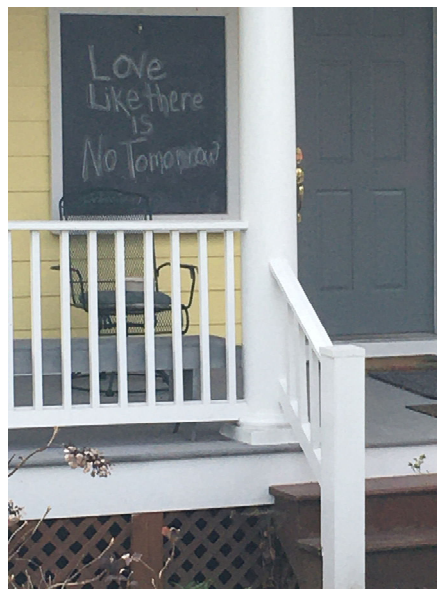 Love
Like there
is
No Tomorrow